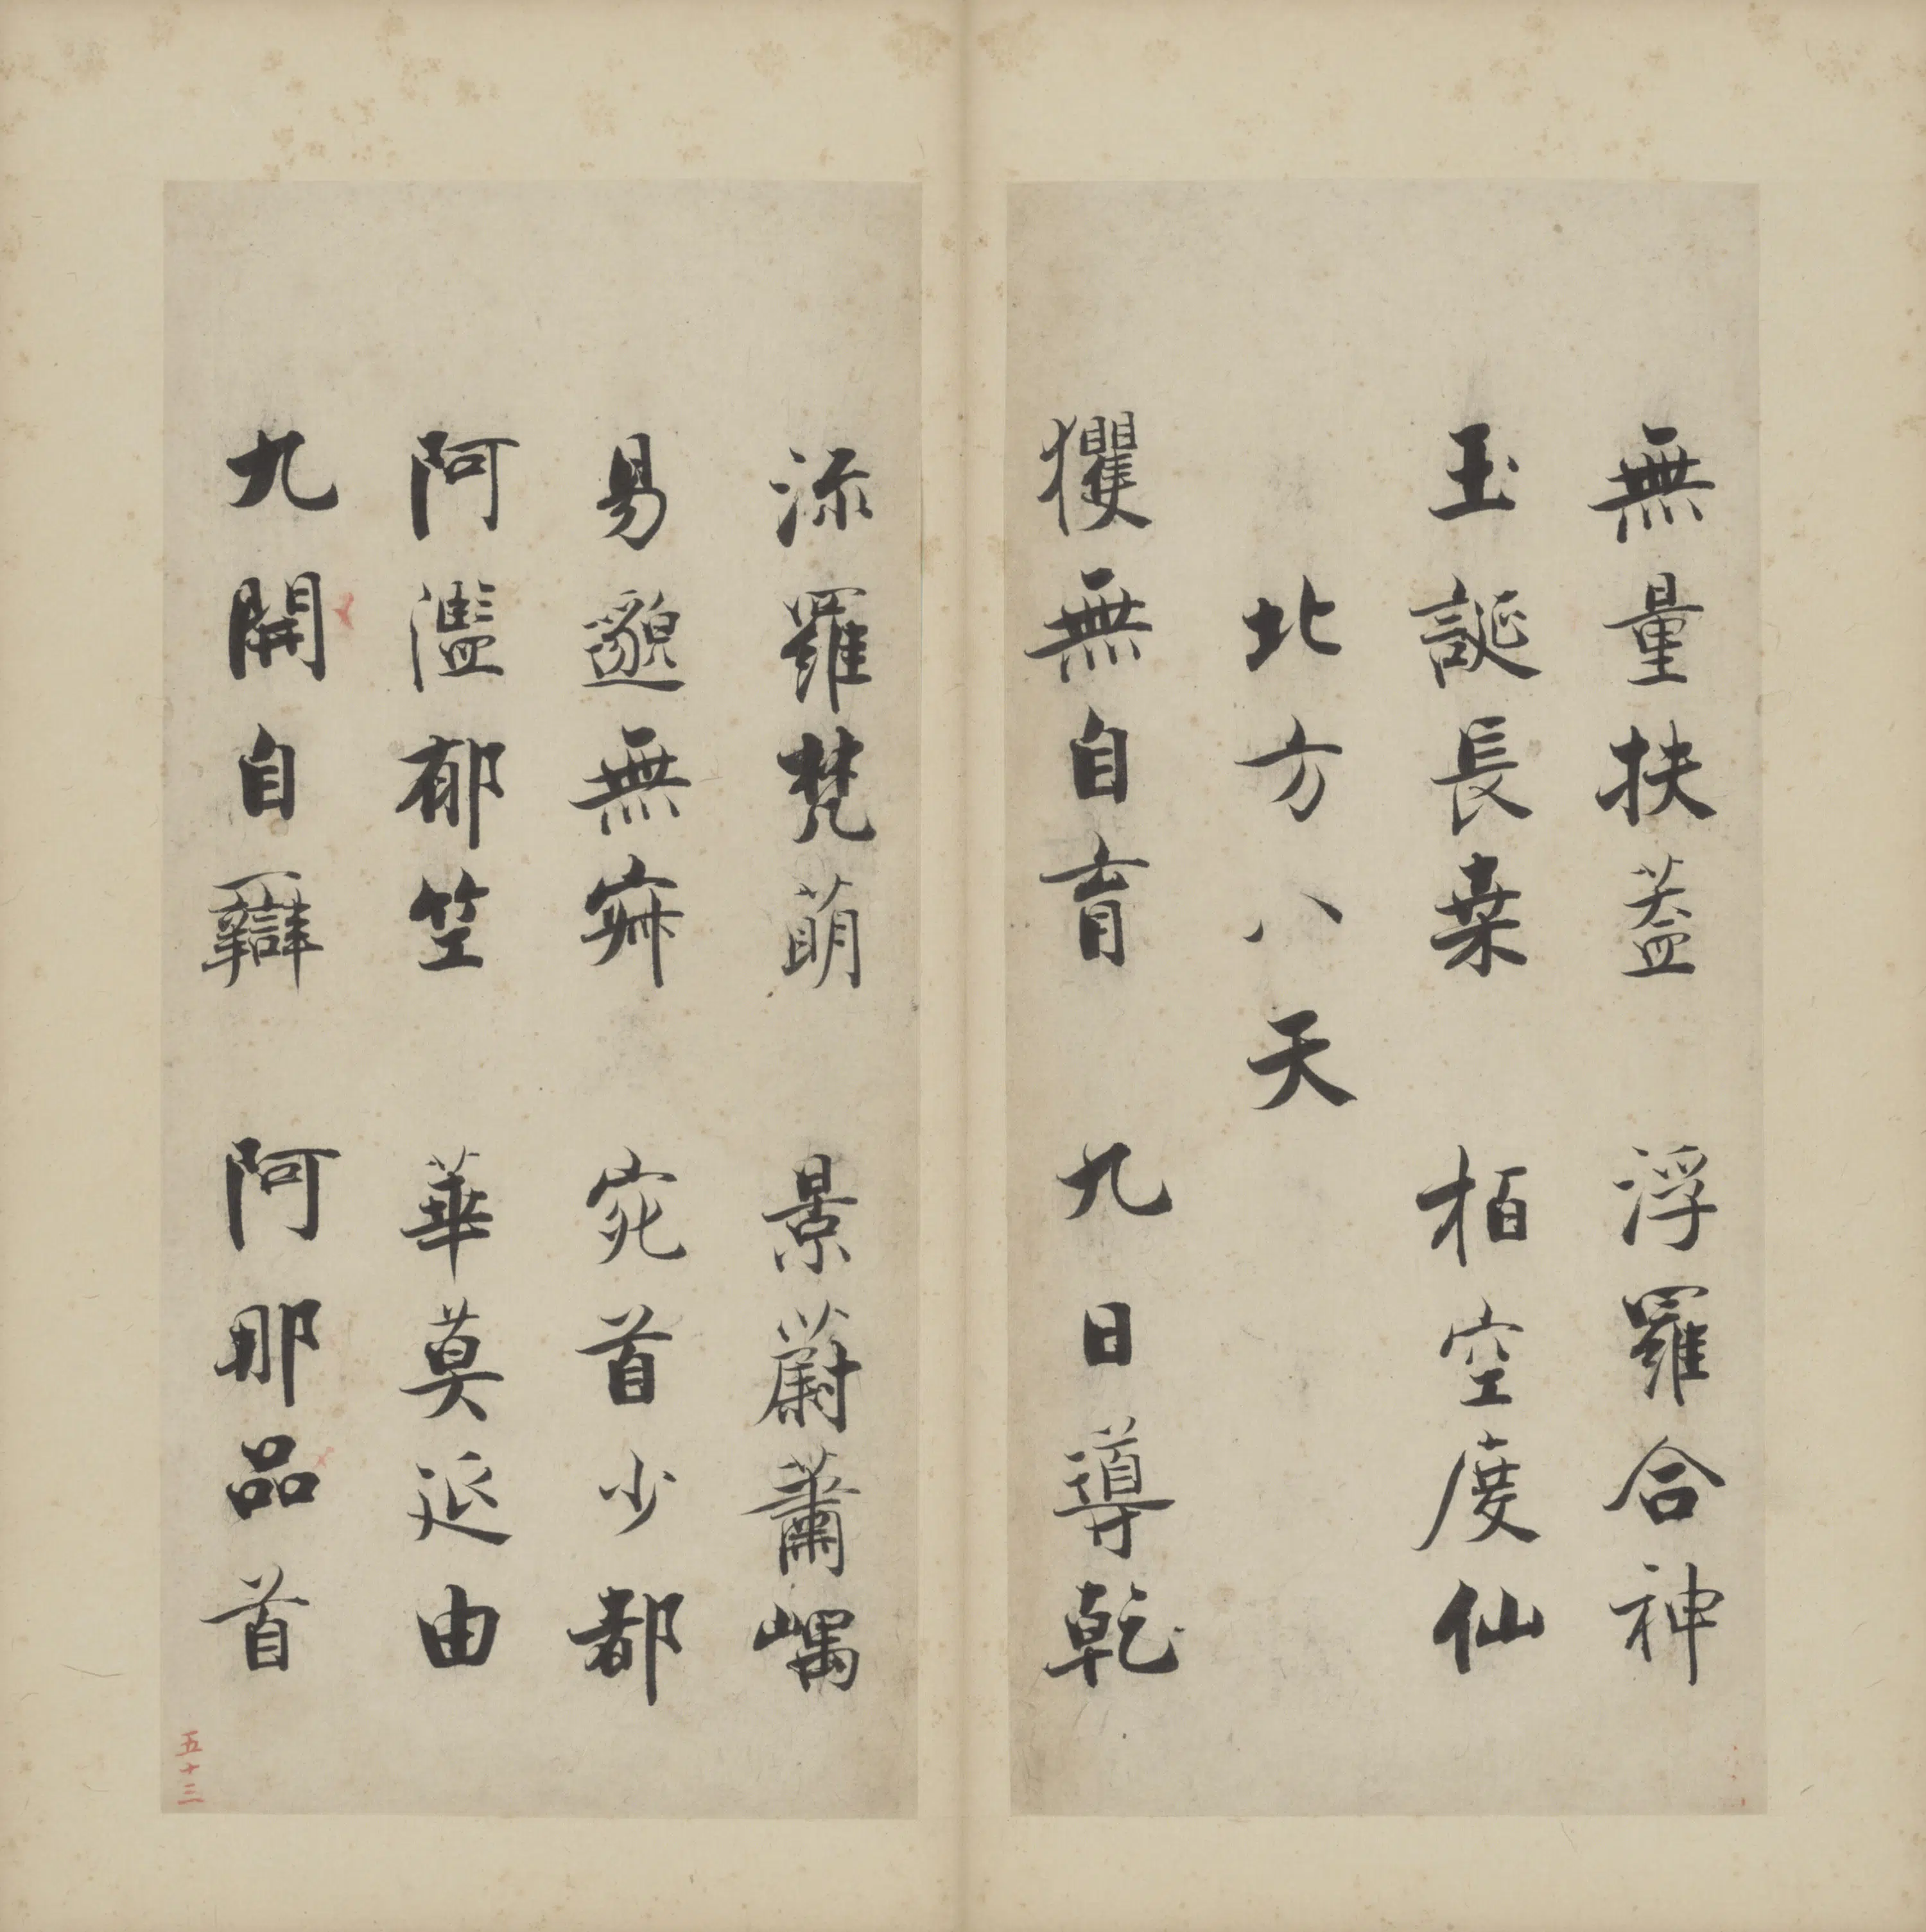 無量扶蓋 浮羅合神
玉誕長桒 栢空度仙
北方八天
玃無自育 九日導乾
流羅梵萌 景蔚蕭嵎
易邈無寂 宛首少都
阿濫郁竺 華莫延由
九開自辯 阿那品首
五十三